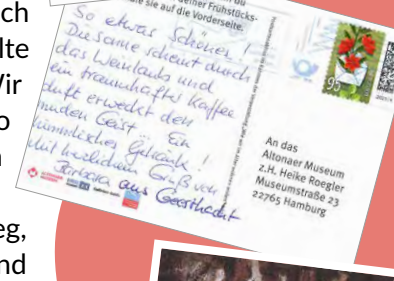 ch
lte
Wir
o
eg,
nd
deiner Frühstücks-
sie auf die Vorderseite.
So etwas Schönes!
Die Sonne scheint durch
das Weinlaub und
ein traumhafter Kaffee
duft erweckt den
müden Geist Ein
himmlisches Getränk!
Mit herzlichem Gruß von
Barbara aus Geesthacht
95
An das
Altonaer Museum
z.H. Heike Roegler
Museumstraße 23
22765 Hamburg